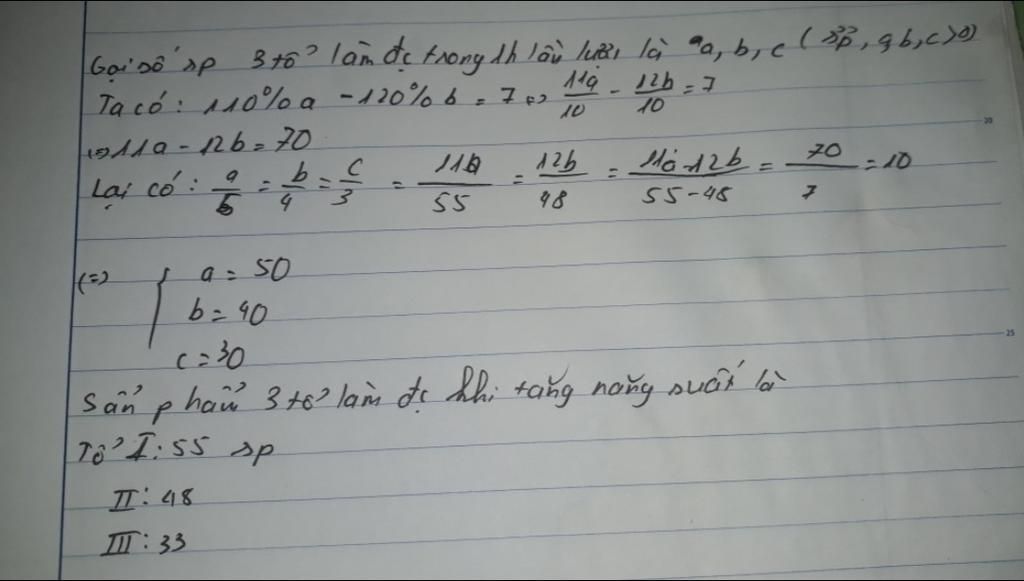 Gọi số sp 3 tổ làm đc trong 1h lần lượt là a, b, c (sp, a, b, c > 0)
Ta có: 110% a - 120% b = 7 <=> 11a/10 - 12b/10 = 7
<=> 11a - 12b = 70
Lại có: a/5 = b/4 = c/3 = 11a/55 = 12b/48 = 11a-12b/55-48 = 70/7 = 10
(=) { a = 50
b = 40
c = 30
Sản phẩm 3 tổ làm đc khi tăng năng suất là
Tổ I: 55 sp
II: 48
III: 33
20
25